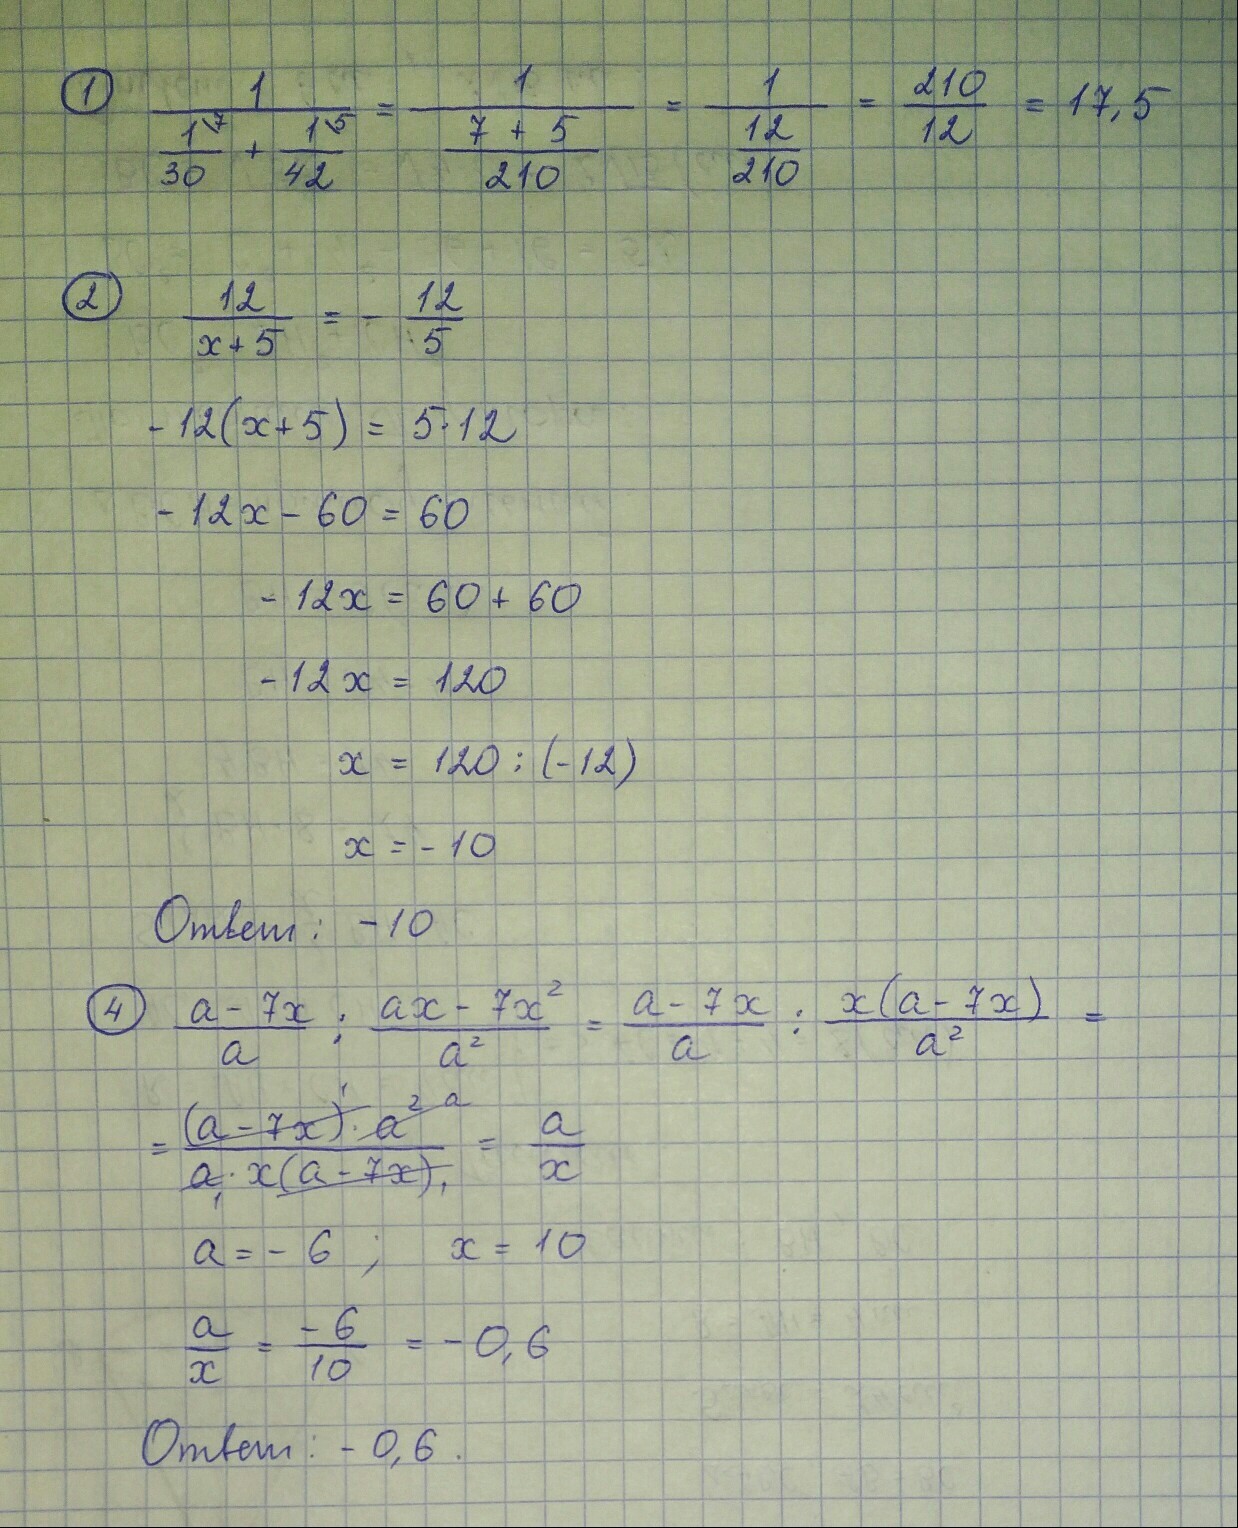 ① 1/(1⁷/30 + 1⁵/42) = 1/((7 + 5)/210) = 1/(12/210) = 210/12 = 17,5
② 12/(x+5) = - 12/5
-12(x+5) = 5·12
-12x - 60 = 60
-12x = 60 + 60
-12x = 120
x = 120 : (-12)
x = -10
Ответ: -10
④ (a - 7x)/a : (ax - 7x²)/a² = (a - 7x)/a : x(a - 7x)/a² =
= ((a - 7x)¹ · a² ᵃ)/(a₁ · x(a - 7x)₁) = a/x
a = - 6 ; x = 10
a/x = -6/10 = -0,6
Ответ: -0,6.